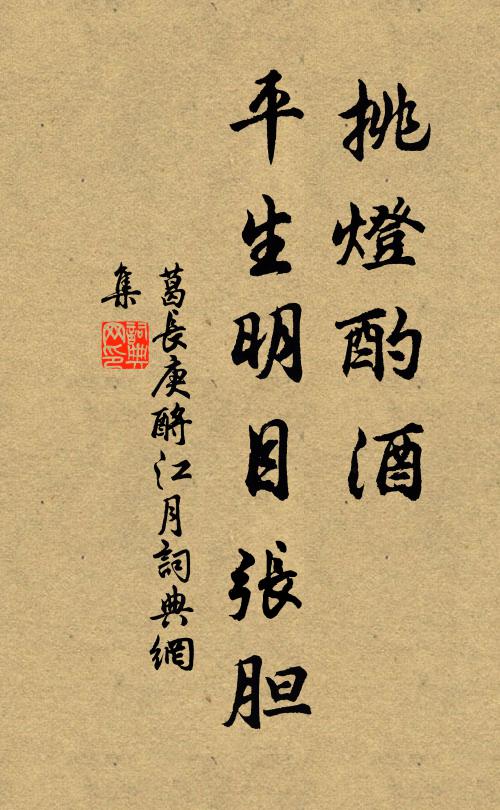 挑燈酌酒
平生明目張胆
葛長庚酹江月詞典網
集
詞典
网印